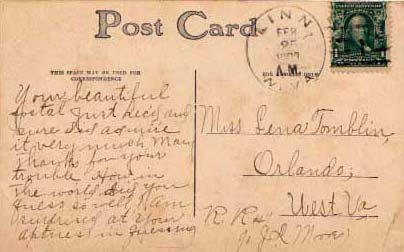 Post Card
KINNY
FEB
25
A.M.
W. VA.
THIS SPACE MAY BE USED FOR
CORRESPONDENCE
Your beautiful
postal just rec'd and
sure did admire
it very much. Many
thanks for your
trouble. How in
the world did you
guess so well. I am
surprised at your
aptness in guessing
Miss Lena Tomblin,
Orlando,
West Va
R. R #